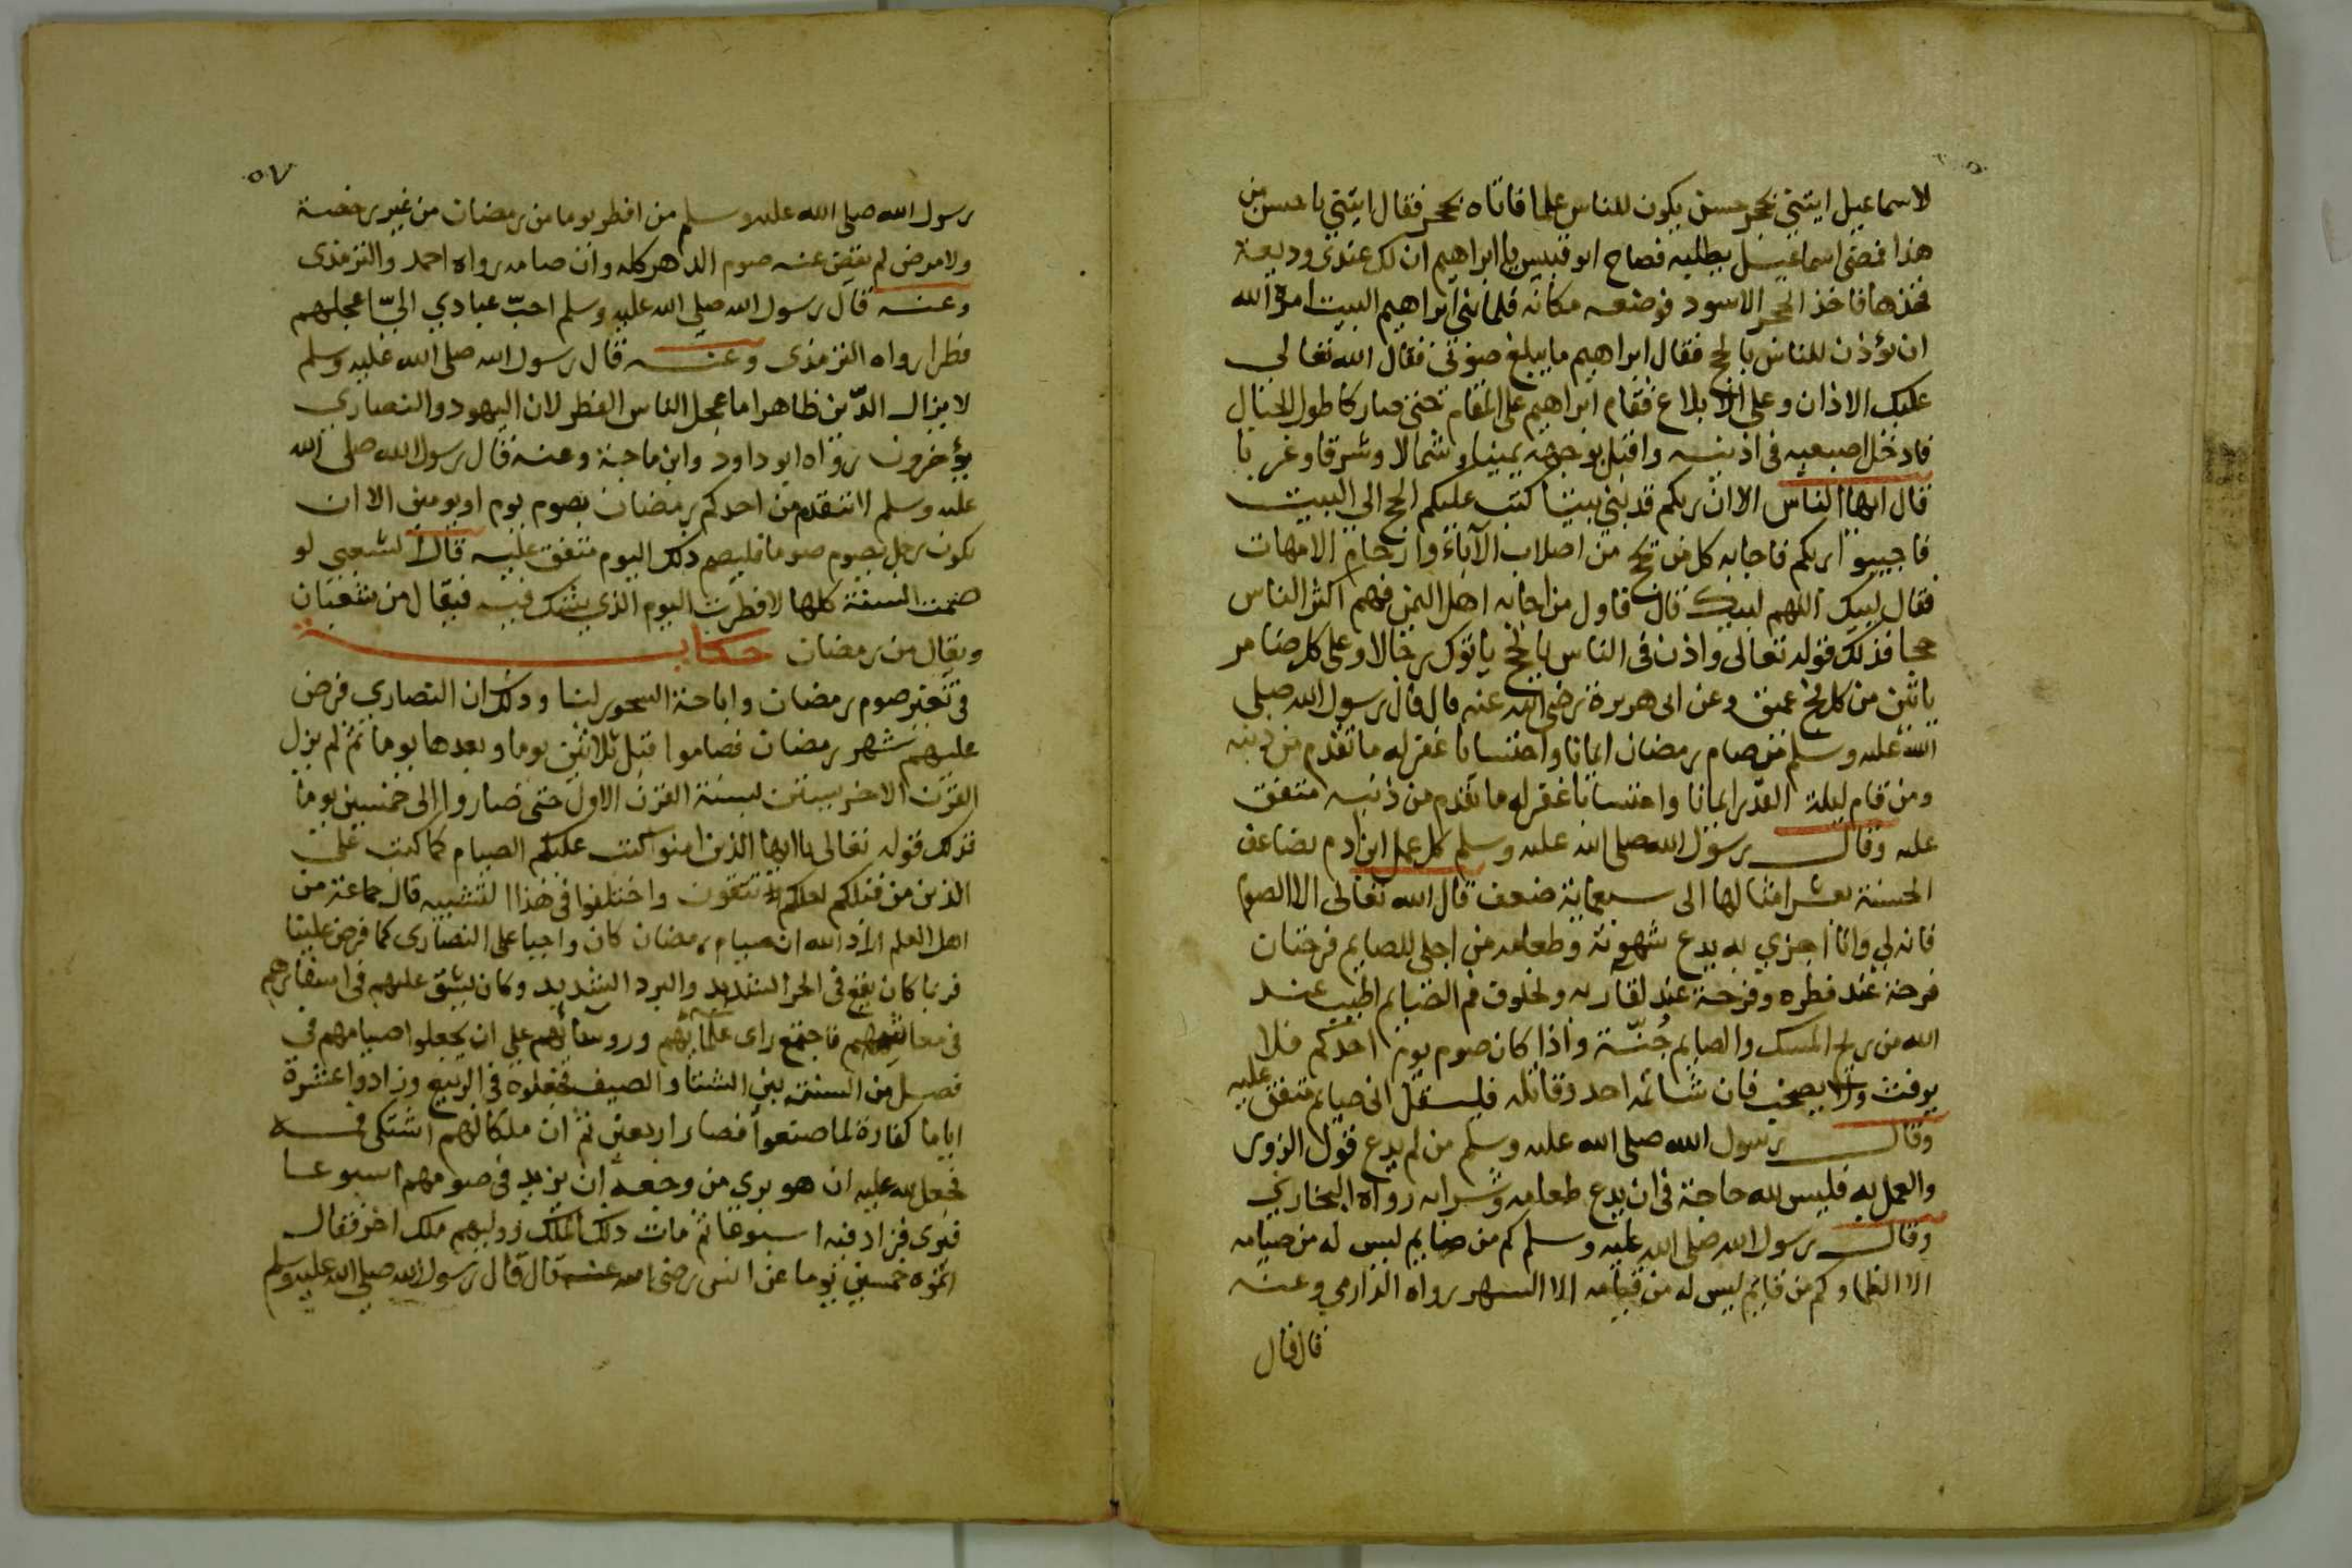 لاسماعيل ايتني بحجر حسن يكون للناس علما فاتاه بحجر فقال ايتني باحسن من
هذا فمضى اسماعيل بطلبه فصاح ابو قبيس يا ابراهيم ان لك عندي وديعة
فخذها فاخذ الحجر الاسود فوضعه مكانه فلما بنى ابراهيم البيت امره الله
ان يؤذن للناس بالحج فقال ابراهيم ما يبلغ صوتي فقال الله تعالى
عليك الاذان وعلي الابلاغ فقام ابراهيم على المقام حتى صار كاطول الجبال
فادخل اصبعيه في اذنيه واقبل بوجهه يمينا وشمالا وشرقا وغربا
قال ايها الناس الا ان ربكم قد بنى بيتا كتب عليكم الحج الى البيت
فاجيبوا ربكم فاجابه كل من يحج من اصلاب الآباء وارحام الامهات
فقال لبيك اللهم لبيك قال فاول من اجابه اهل اليمن فهم اكثر الناس
حجا فذلك قوله تعالى واذن في الناس بالحج ياتوك رجالا وعلى كل ضامر
ياتين من كل فج عميق وعن ابي هريرة رضي الله عنه قال قال رسول الله صلى
الله عليه وسلم من صام رمضان ايمانا واحتسابا غفر له ما تقدم من ذنبه
ومن قام ليلة القدر ايمانا واحتسابا غفر له ما تقدم من ذنبه متفق
عليه وقال رسول الله صلى الله عليه وسلم كل عمل ابن ادم يضاعف
الحسنة بعشر امثالها الى سبعماية ضعف قال الله تعالى الا الصوم
فانه لي وانا اجزي به يدع شهوته وطعامه من اجلي للصايم فرحتان
فرحة عند فطره وفرحة عند لقاء ربه ولخلوف فم الصايم اطيب عند
الله من ريح المسك والصايم جُنّة واذا كان صوم يوم احدكم فلا
يرفث ولا يصخب فان شاتمه احد وقاتله فليقل اني صايم متفق عليه
وقال رسول الله صلى الله عليه وسلم من لم يدع قول الزور
والعمل به فليس لله حاجة في ان يدع طعامه وشرابه رواه البخاري
وقال رسول الله صلى الله عليه وسلم كم من صايم ليس له من صيامه
الا الظما وكم من قايم ليس له من قيامه الا السهر رواه الدارمي وعنه
قال قال
٥٧
رسول الله صلى الله عليه وسلم من افطر يوما من رمضان من غير رخصة
ولا مرض لم يقض عنه صوم الدهر كله وان صامه رواه احمد والترمذي
وعنه قال رسول الله صلى الله عليه وسلم احبّ عبادي اليّ اعجلهم
فطرا رواه الترمذي وعنه قال رسول الله صلى الله عليه وسلم
لا يزال الدّين ظاهرا ما عجل الناس الفطر لان اليهود والنصارى
يؤخرون رواه ابو داود وابن ماجة وعنه قال رسول الله صلى الله
عليه وسلم لا يتقدمن احدكم رمضان بصوم يوم او يومين الا ان
يكون رجل يصوم صوما فليصم ذلك اليوم متفق عليه قال الشعبي لو
صمت السنة كلها لافطرت اليوم الذي يشك فيه فيقال من شعبان
ويقال من رمضان حكاية
في تغير صوم رمضان واباحة السحور لنا وذلك ان النصارى فرض
عليهم شهر رمضان فصاموا قبل ثلاثين يوما وبعدها يوما ثم لم يزل
القرن الاخر يستن لسنة القرن الاول حتى صاروا الى خمسين يوما
فذلك قوله تعالى يا ايها الذين امنوا كتب عليكم الصيام كما كتب على
الذين من قبلكم لعلكم تتقون واختلفوا في هذا التشبيه قال جماعة من
اهل العلم اراد الله ان صيام رمضان كان واجبا على النصارى كما فرض علينا
فربما كان يقع في الحر الشديد والبرد الشديد وكان يشق عليهم في اسفارهم
في معايشهم فاجتمع راى علمائهم وروسائهم على ان يجعلوا صيامهم في
فصل من السنة بين الشتا والصيف فجعلوه في الربيع وزادوا عشرة
اياما كفارة لما صنعوا فصار اربعين ثم ان ملكا لهم اشتكى فمه
فجعل لله عليه ان هو بري من وجعه ان يزيد في صومهم اسبوعا
فبرى فزاد فيه اسبوعا ثم مات ذلك الملك ووليهم ملك اخر فقال
اتموه خمسين يوما عن انس رضي الله عنه قال قال رسول الله صلى الله عليه وسلم